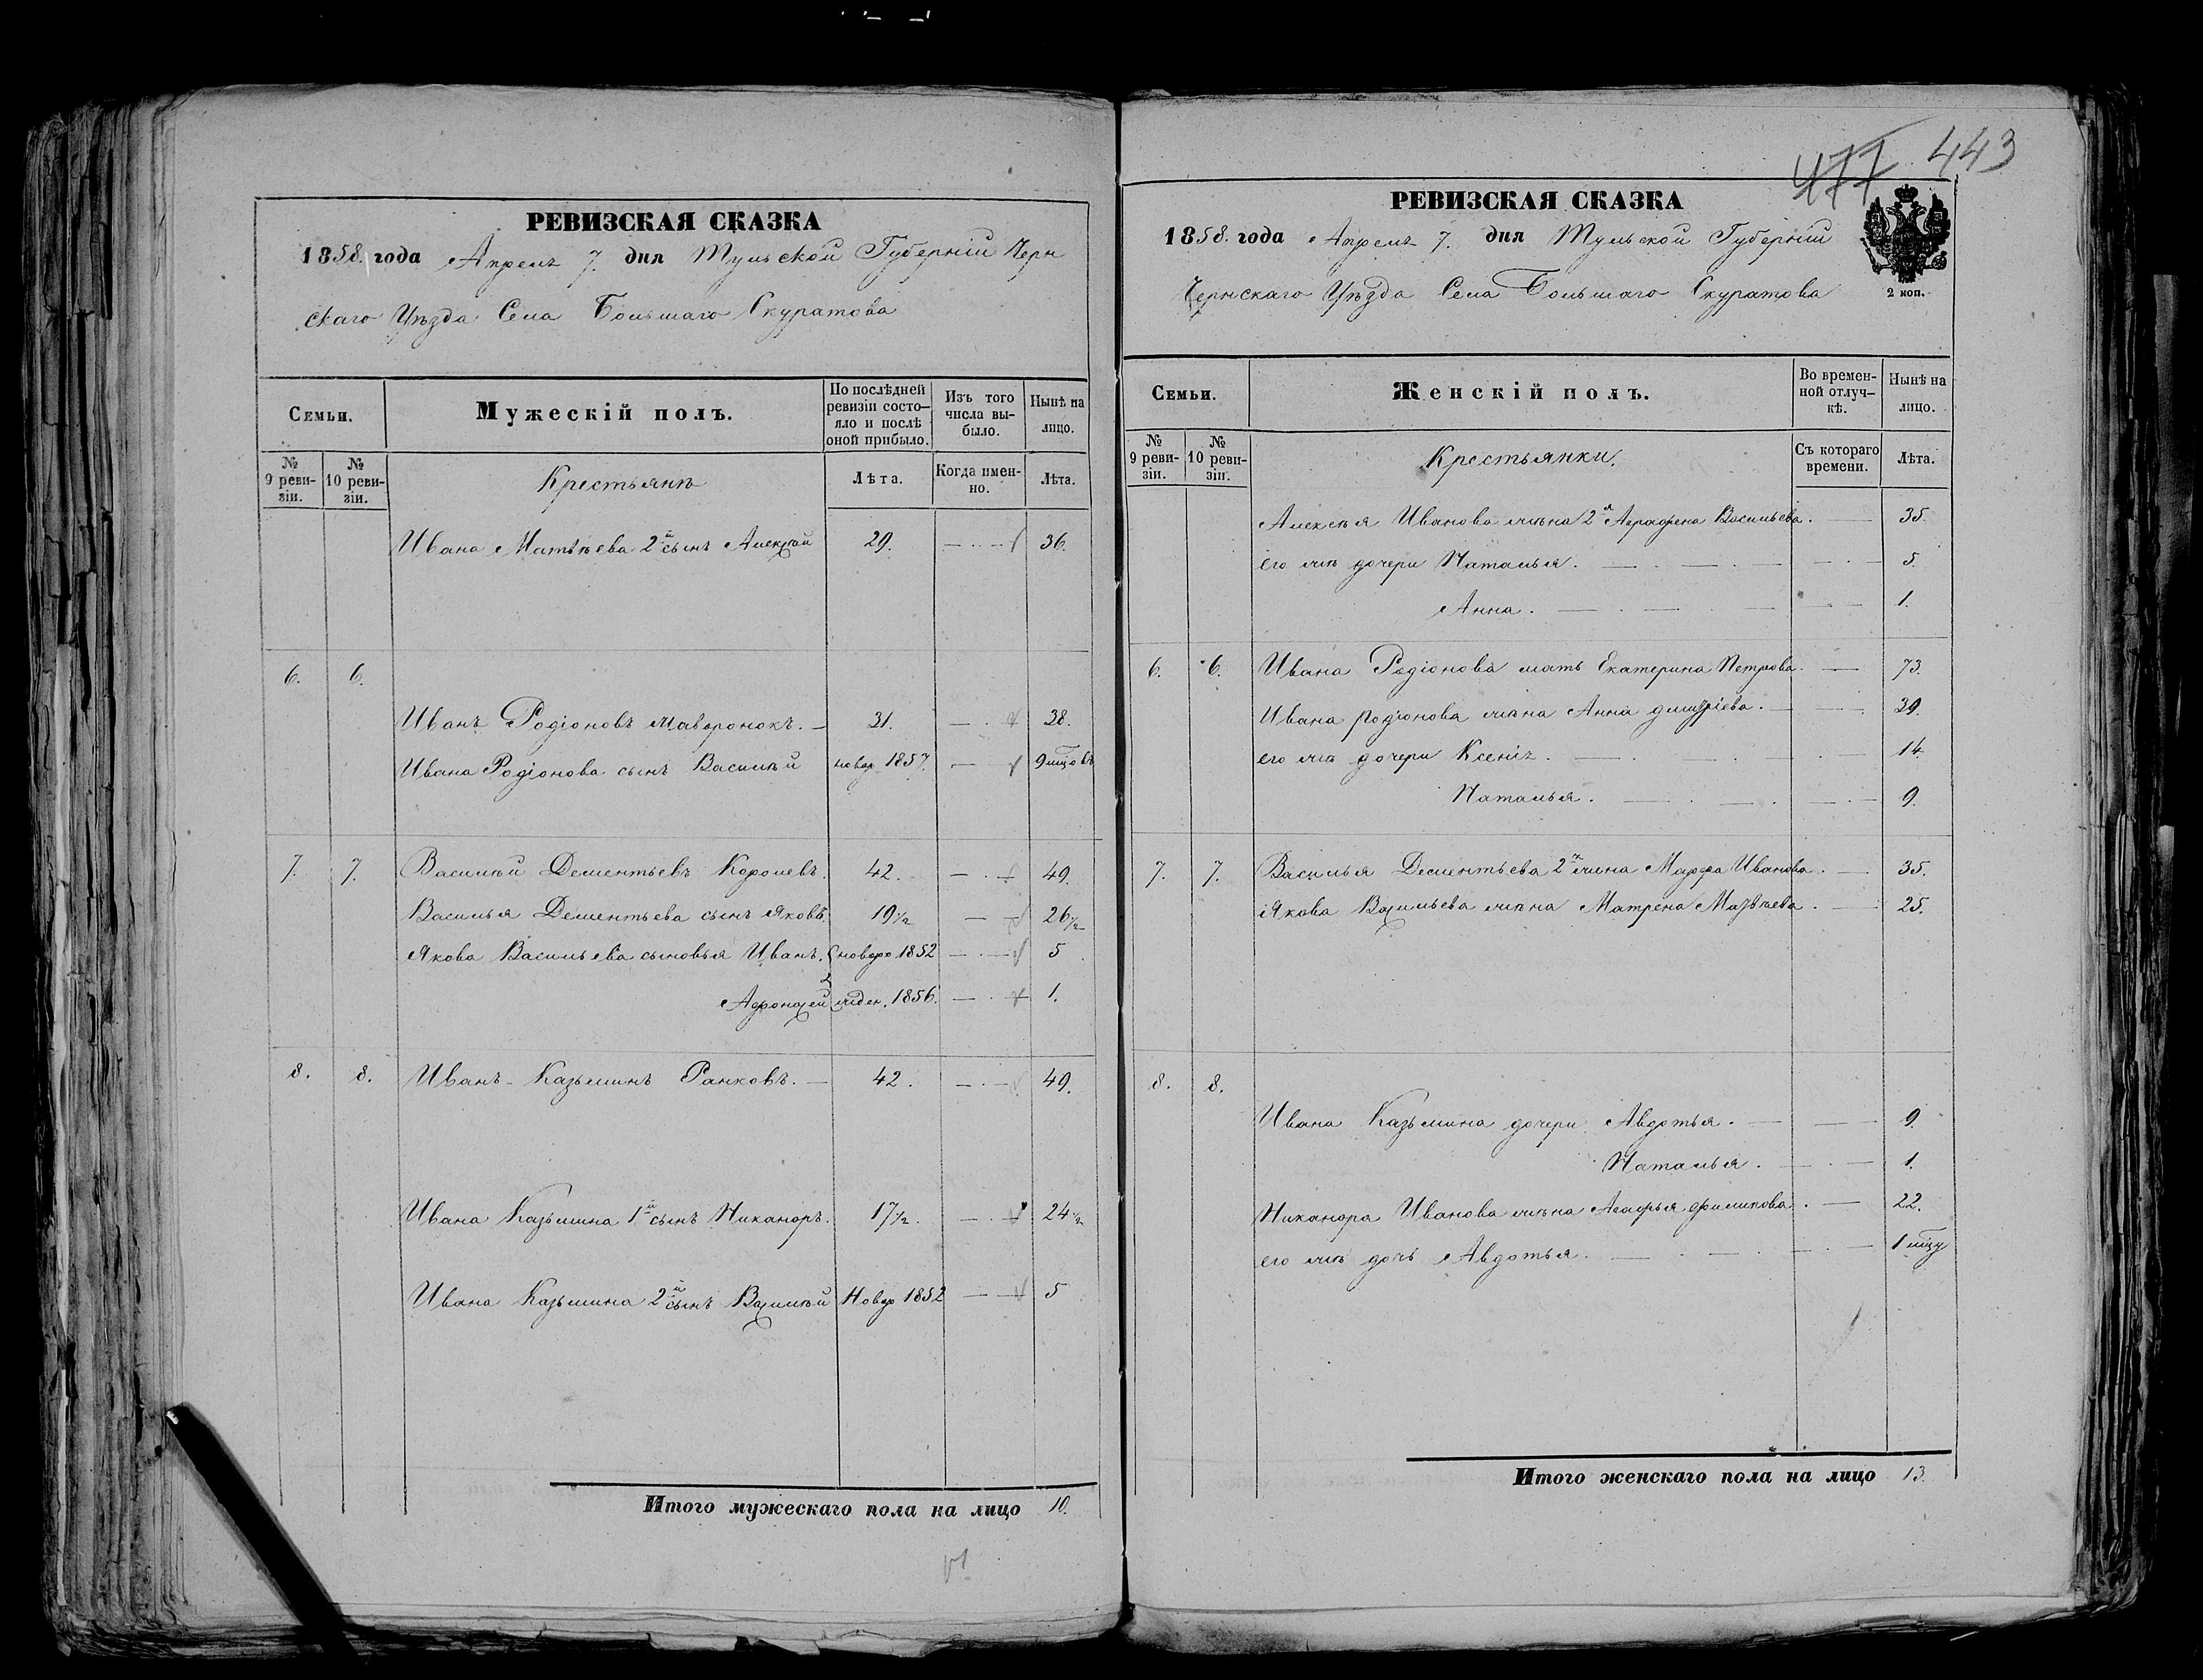 РЕВИЗСКАЯ СКАЗКА
1858. года Апреля 7. дня Тульской Губернiи Черн
скаго Уѣзда Села Большаго Скуратова
Семьи.
Мужескiй полъ.
По послѣдней ревизiи состо-
яло и послѣ
оной прибыло.
Изъ того
числа вы-
было.
Нынѣ на
лицо.
№
9 реви-
зiи.
№
10 реви-
зiи.
Крестьянѣ
Лѣта.
Когда имен-
но.
Лѣта.
Ивана Матвѣева 2й сынъ Алексѣй 29. 36.
6. 6.
Иванъ Родiоновъ 31. 38.
Ивана Родiонова сынъ Василiй новор 1857. 9
7. 7. Василiй Дементьевъ Королевъ. 42. 49.
Василья Дементьева сынъ Яковъ. 19 1/2 26 1/2
Якова Васильева сыновья Иванъ. новоро 1852 5
1856. 1.
8. 8. Иванъ Казьминъ Ранковъ. 42. 49.
Ивана Казьмина 1й сынъ Никаноръ. 17 1/2. 24 1/2
Ивана Казьмина 2й сынъ Василiй Новор 1852 5
Итого мужескаго пола на лицо 10.
477 443
РЕВИЗСКАЯ СКАЗКА
1858. года Апреля 7. дня Тульской Губернiи
Чернскаго Уѣзда Села Большаго Скуратова
2 коп.
Семьи.
Женскiй полъ.
Во времен-
ной отлуч-
кѣ.
Нынѣ на
лицо.
№
9 реви-
зiи.
№
10 реви-
зiи.
Крестьянки.
Съ котораго
времени.
Лѣта.
Алексѣя Иванова жѣна 2я Аграфена Васильева. 35.
его жѣ дочери Наталья. 5.
Анна. 1.
6. 6. Ивана Родiонова мать Екатерина Петрова. 73.
Ивана родiонова жѣна Анна дмитрiева. 39.
его жѣ дочери Ксенiя. 14.
Наталья. 9.
7. 7. Василья Дементьева 2я жина Марфа Иванова. 35.
Якова Васильева жѣна Матрена Матвѣева. 25.
8. 8.
Ивана Казьмина дочери Авдотья. 9.
Наталья. 1.
Никанора Иванова жѣна Агафья филипова. 22.
его жѣ дочь Авдотья. 1
Итого женскаго пола на лицо 13.